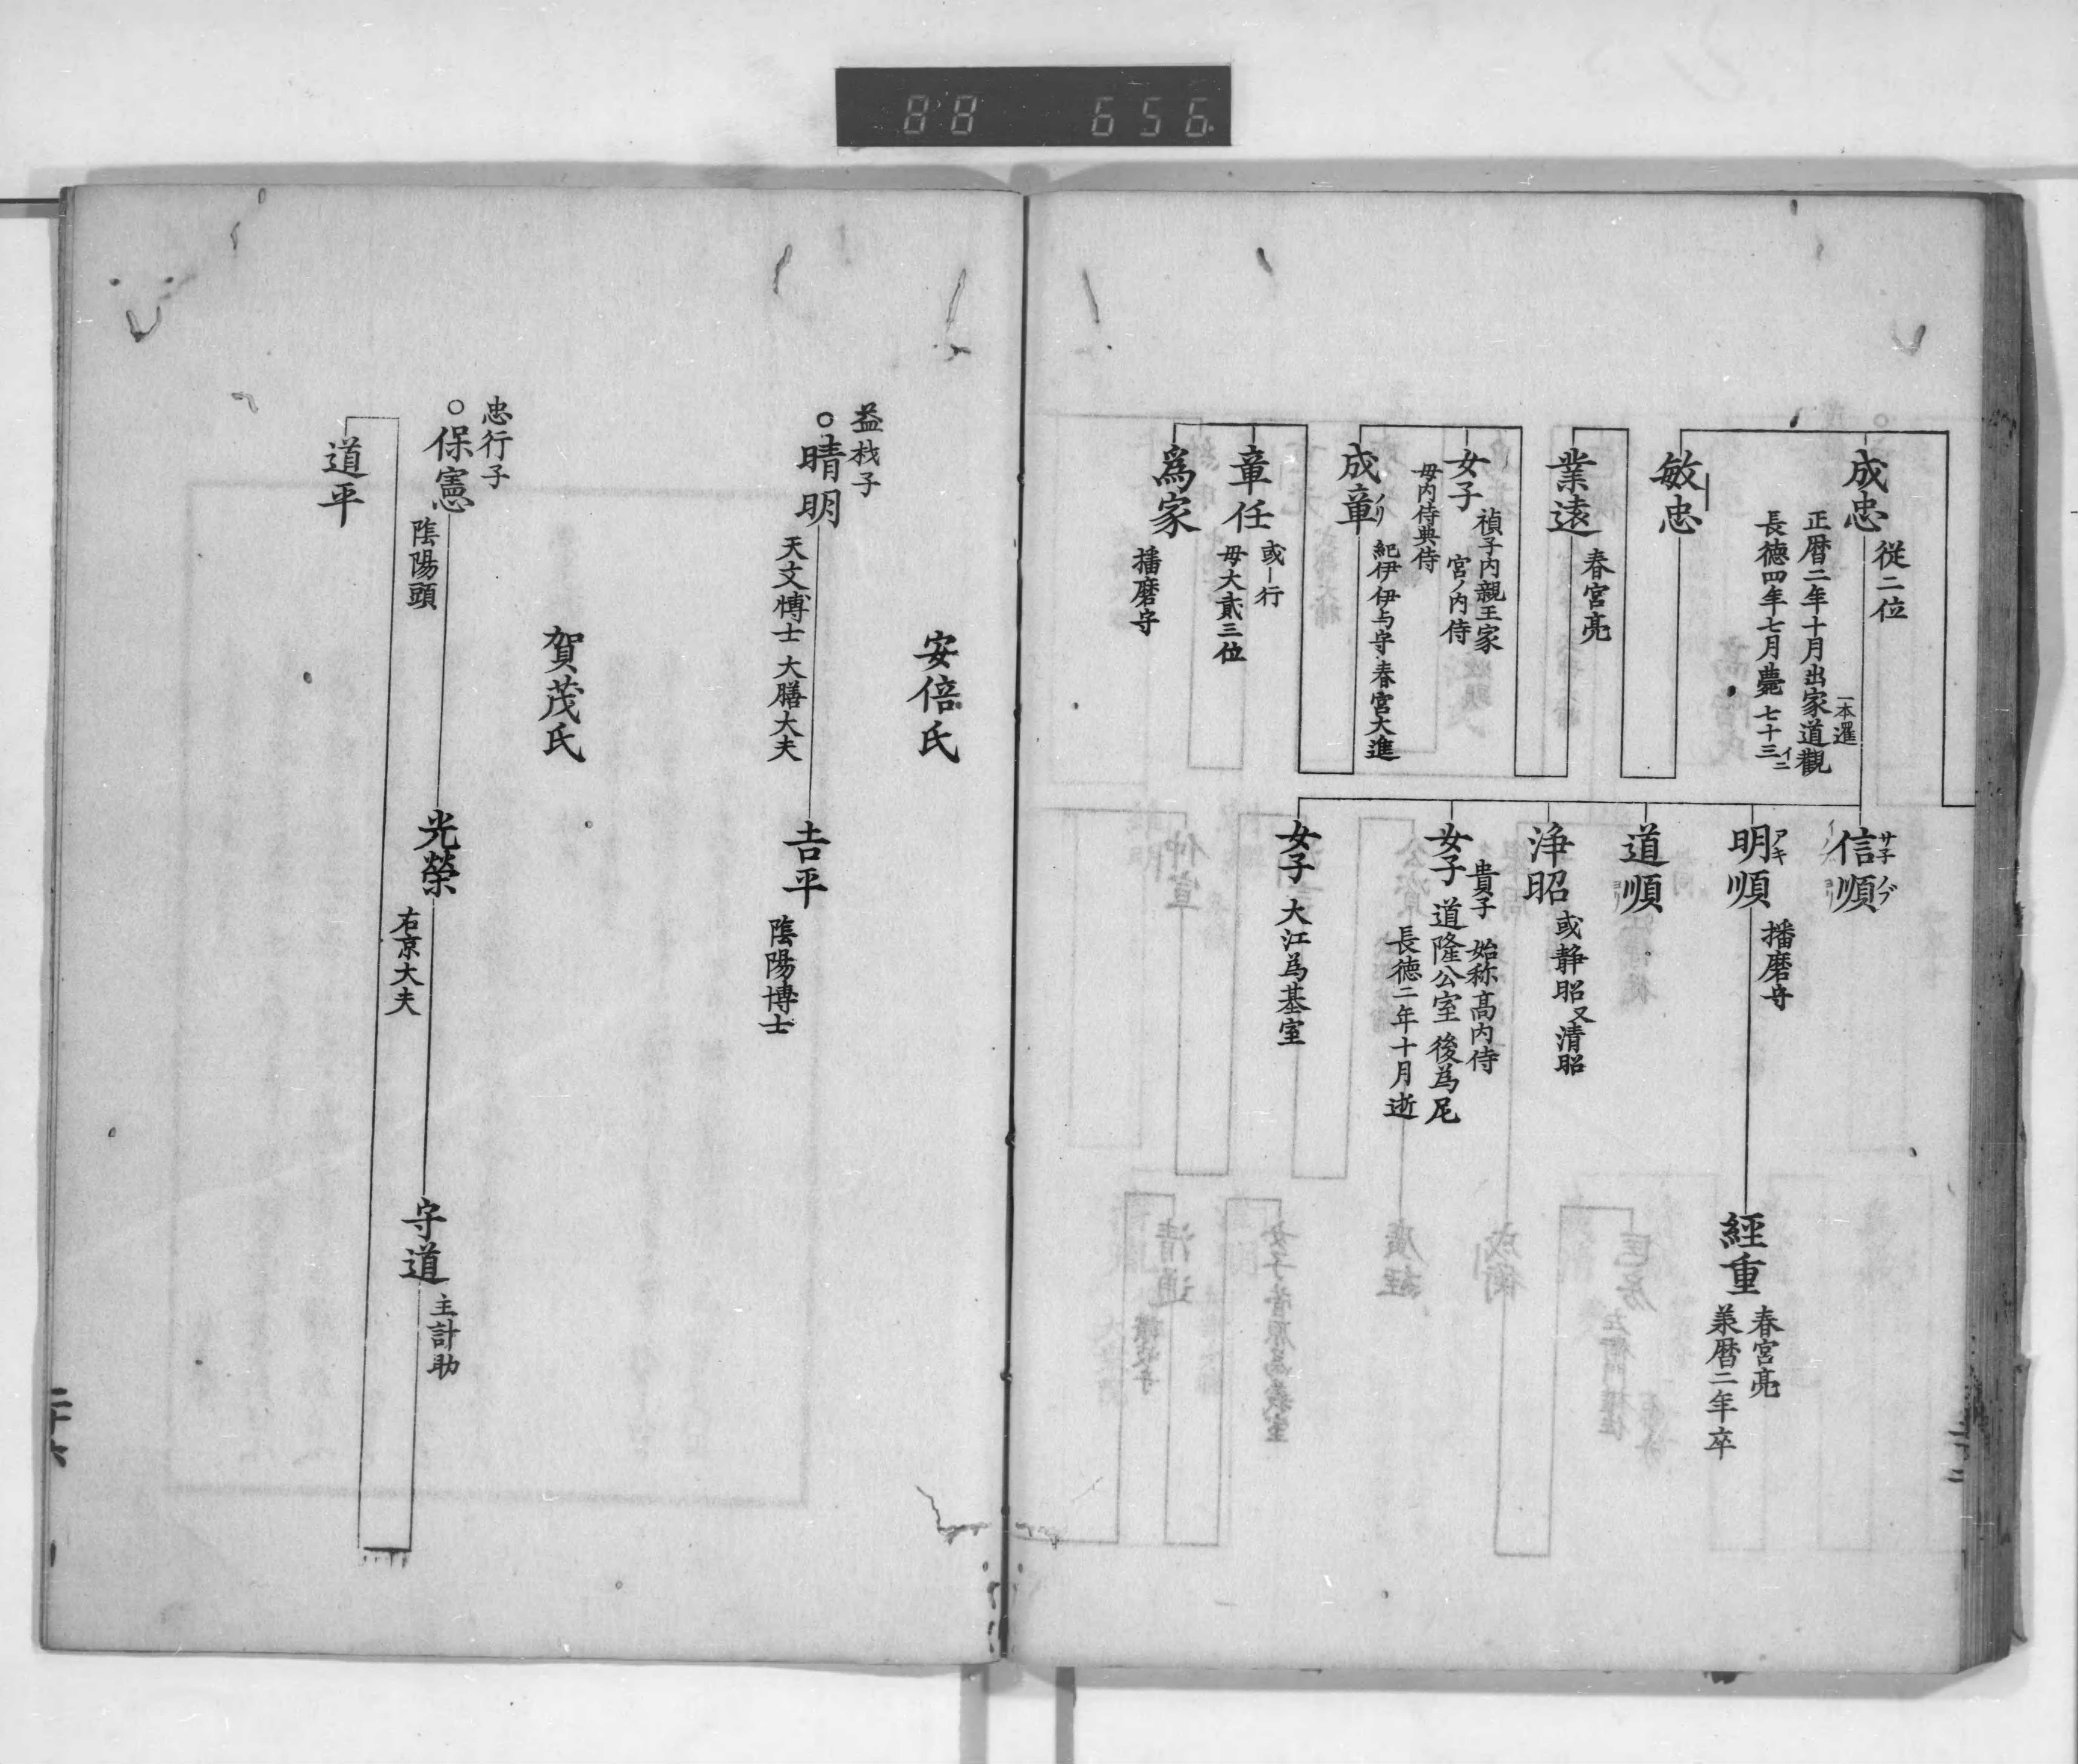 88 656
成忠
従二位
正暦二年十月出家道觀
一本暹
長徳四年七月薨 七十三
イ二
敏忠
業遠
春宮亮
女子
禎子内親王家
宮ノ内侍
母内侍典侍
成章
ノリ
紀伊伊与守春宮大進
章任
或ー行
母大貳三位
為家
播磨守
信順
サ子ノブ
明順
アキ
播磨守
經重
春宮亮
兼暦二年卒
道順
浄昭
或静昭又清昭
女子
貴子 始称高内侍
道隆公室 後為尼
長徳二年十月逝
女子
大江為基室
安倍氏
益材子
○晴明
天文博士 大膳大夫
吉平
陰陽博士
賀茂氏
忠行子
○保憲
陰陽頭
光榮
右京大夫
守道
主計助
道平
二十六